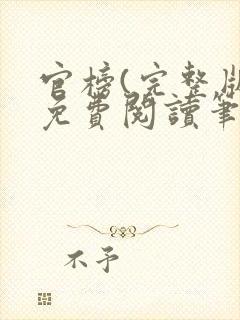 官榜(完整版
免費閱讀筆
不予